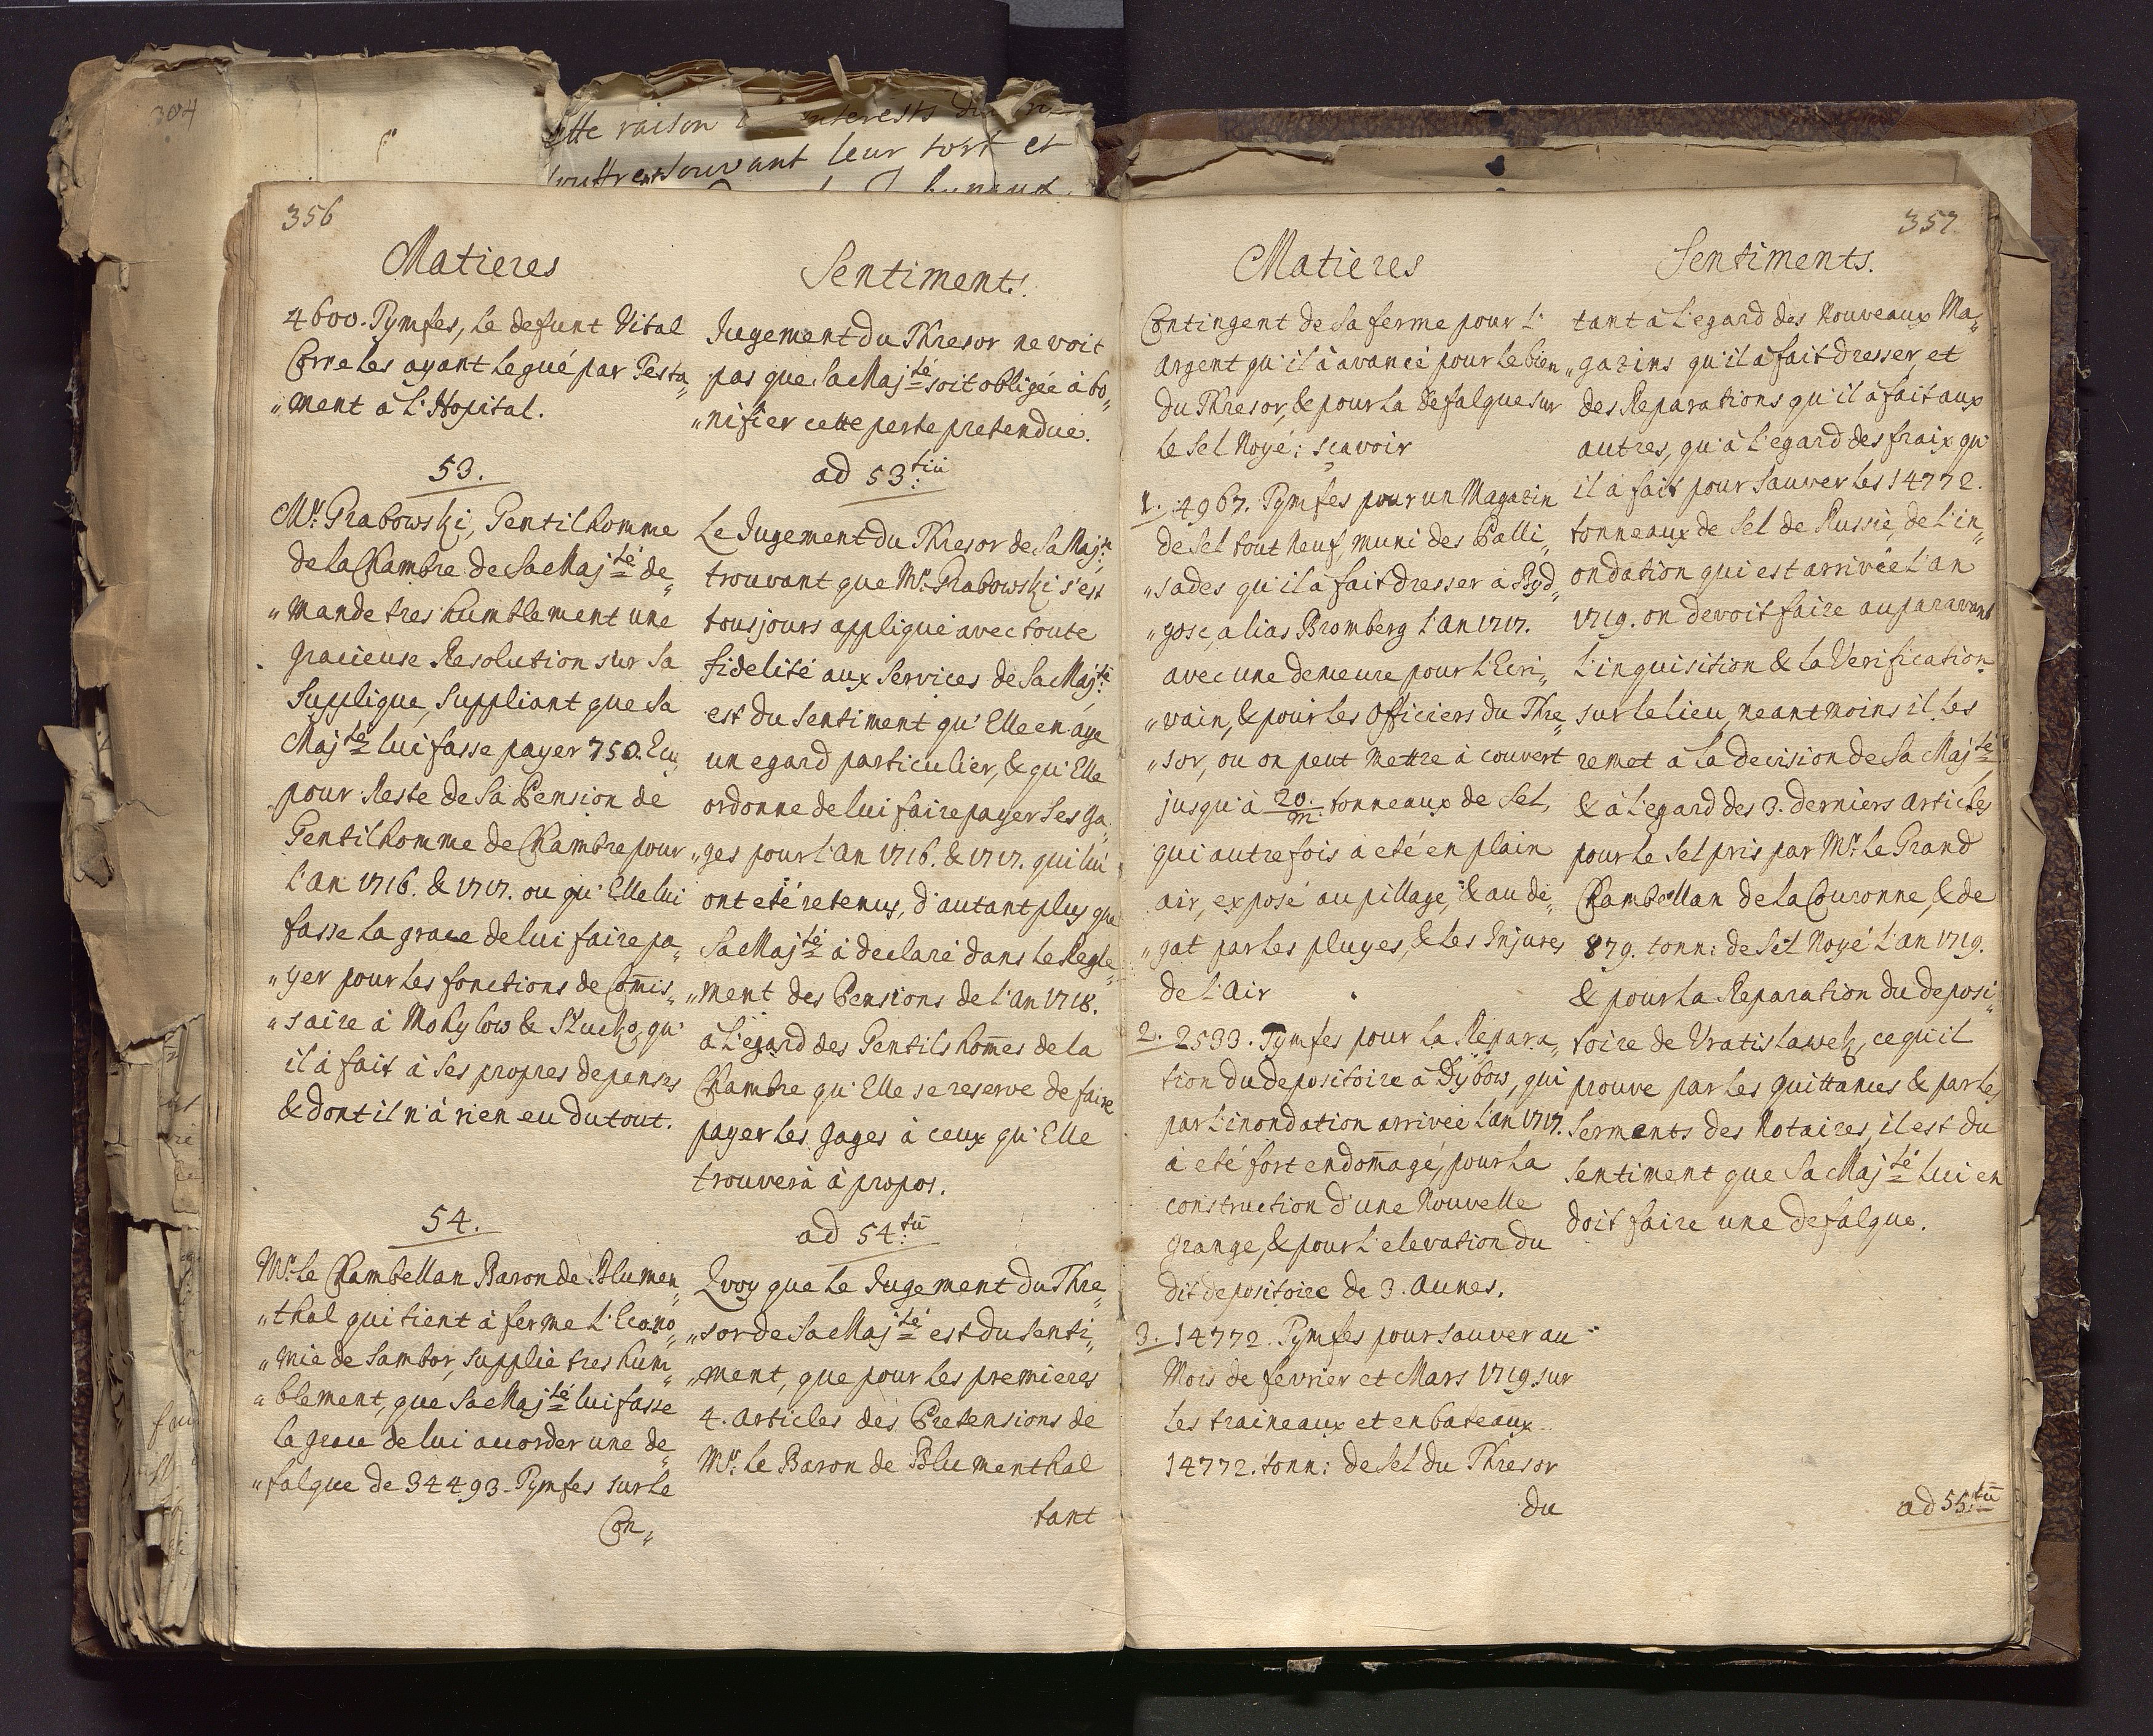 304
cette raison
souvant leur tort et
356
Matieres
4600. Tymfes, le defunt Vital
Corre les ayant legué par Testa„
„ment à L'Hopital.
53.
Mr. Grabowski, Gentilhomme
de la Chambre de Sa Maj.té de„
„mande tres humblement une
gracieuse Resolution sur sa
supplique, suppliant que Sa
Maj.té lui fasse payer 750. Ecu
pour Reste de sa Pension de
Gentilhomme de Chambre pour
L'an 1716. & 1717. ou qu'Elle lui
fasse la grace de lui faire pa„
„yer pour les fonctions de Com̄is„
„saire à Mohylow & Sluck, qu'
il à fait à ses propres depenses
& dont il n'à rien eu du tout.
54.
Mr. le Chambellan Baron de Blumen„
„thal qui tient à ferme L'Econo„
„mie de Sambor, supplie tres hum„
„blement, que Sa Maj.té lui fasse
la grace de lui accorder une de„
„falque de 34493. Tymfes sur le
Con„
Sentiments.
Jugement du Thresor ne voit
pas que Sa Maj.té soit obligée à bo„
„nifier cette perte pretendue.
ad 53.tiū
Le Jugement du Thresor de Sa Maj.té
trouvant que Mr. Grabowski s'est
tousjours appliqué avec toute
fidelité aux Services de Sa Maj.té
est du Sentiment qu'Elle en aye
un egard particulier, & qu'Elle
ordonne de lui faire payer ses Ga„
„ges pour L'an 1716. & 1717. qui lui
ont eté retenus, d'autant plus que
Sa Maj.té à declaré dans le Regle„
„ment des Pensions de L'an 1718.
à L'egard des Gentilshom̄es de la
Chambre qu'Elle se reserve de faire
payer les Gages à ceux qu'Elle
trouverà à propos.
ad 54.tū
Quoy que le Jugement du Thre„
„sor de Sa Maj.té est du Senti„
„ment, que pour les premieres
4. articles des Pretensions de
Mr. le Baron de Blumenthal
tant
357
Matieres
Contingent de sa ferme pour L'
argent qu'il à avancé pour le bien
du Thresor, & pour la defalque sur
le Sel Noyé: sçavoir
1. 4967. Tymfes pour un Magazin
de Sel tout neuf, muni des Palli„
„sades qu'il à fait dresser à Byd„
„gosc, alias Bromberg L'an 1717.
avec une demeure pour L'Ecri„
„vain, & pour les Officiers du Thre„
„sor, ou on peut mettre à couvert
jusqu'à 20./m. tonneaux de Sel,
qui autrefois a eté en plain
air, exposé au pillage, & au dé„
„gat par les pluyes, & les Injures
de L'air
2. 2533. Tymfes pour la Repara„
tion du depositoire à Dybow, qui
par L'inondation arrivée L'an 1717.
à eté fort endom̄agé, pour la
construction d'une Nouvelle
grange, & pour L'elevation du
dit depositoire de 3. Aunes.
3. 14772. Tymfes pour sauver au
Mois de fevrier et Mars 1719. sur
les traineaux et en bateaux
14772. tonn: de Sel du Thresor
du
Sentiments.
tant à L'egard des Nouveaux Ma„
„gazins qu'il à fait dresser, et
des Reparations qu'il à fait aux
autres, qu'à L'egard des fraix qu'
il a fait pour sauver les 14772.
tonneaux de Sel de Russie, de L'in„
ondation qui est arrivée L'an
1719. on devoit faire auparavant
L'inquisition & la Verification
sur le lieu, neantmoins il les
remet à la decision de Sa Maj.té
& à L'egard des 3. derniers articles
pour le Sel pris par Mr. le Grand
Chambellan de la Couronne, & de
879. tonn: de Sel Noyé L'an 1719.
& pour la Reparation du deposi„
toire de Vratislawek, ce qu'il
prouve par les quittances & par les
Serments des Notaires, il est du
Sentiment que Sa Maj.té lui en
doit faire une defalque.
ad 55.tū